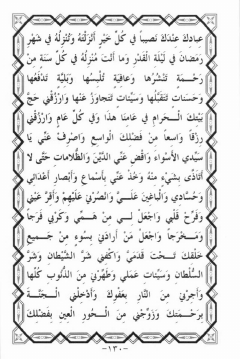 عبادك عندك نصيباً في كُلِّ خَيْرٍ أَنْزَلْتَهُ وَتُنْزِلُهُ في شَهْرِ
رَمَضانَ في لَيْلَةِ الْقَدْرِ وَما أَنْتَ مُنْزِلُهُ في كُلِّ سَنَةٍ مِنْ
رَحْـمَةٍ تَنْشُرُها وَعافِيَةٍ تُلْبِسُها وَبَلِيَّةٍ تَدْفَعُها
وَحَسَناتٍ تَتَقَبَّلُها وَسَيِّئاتٍ تَتَجاوَزُ عَنْها وَارْزُقْني حَجَّ
بَيْتِكَ الْـحَرامِ في عَامِنا هذا وَفي كُلِّ عَامٍ وَارْزُقْني
رِزْقاً واسعاً مِنْ فَضْلِكَ الْواسِعِ وَاصْرِفْ عَنِّي يا
سَيِّدي الْأَسْواءَ وَاقْضِ عَنِّي الدَّيْنَ وَالظُّلاماتِ حَتَّى لا
أَتَأَذَّى بِشَيْءٍ مِنْهُ وَخُذْ عَنِّي بِأَسْماعِ وَأَبْصارِ أَعْدائي
وَحُسَّادي وَالْباغينَ عَلَيَّ وَانْصُرْني عَلَيْهِمْ وَأَقِرَّ عَيْني
وَفَرِّحْ قَلْبي وَاجْعَلْ لي مِنْ هَمِّي وَكَرْبي فَرَجاً
وَمَـخْرَجاً وَاجْعَلْ مَنْ أَرادَني بِسُوءٍ مِنْ جَـميعِ
خَلْقِكَ تَحْتَ قَدَمَيَّ وَاكْفِني شَرَّ الشَّيْطانِ وَشَرَّ
السُّلْطانِ وَسَيِّئاتِ عَمَلي وَطَهِّرْني مِنَ الذُّنُوبِ كُلِّها
وَأَجِرْني مِنَ النَّارِ بِعَفْوِكَ وَأَدْخِلْني الْـجَنَّةَ
بِرَحْمَتِكَ وَزَوِّجْني مِنَ الْـحُورِ الْعينِ بِفَضْلِكَ
~١٣٠~